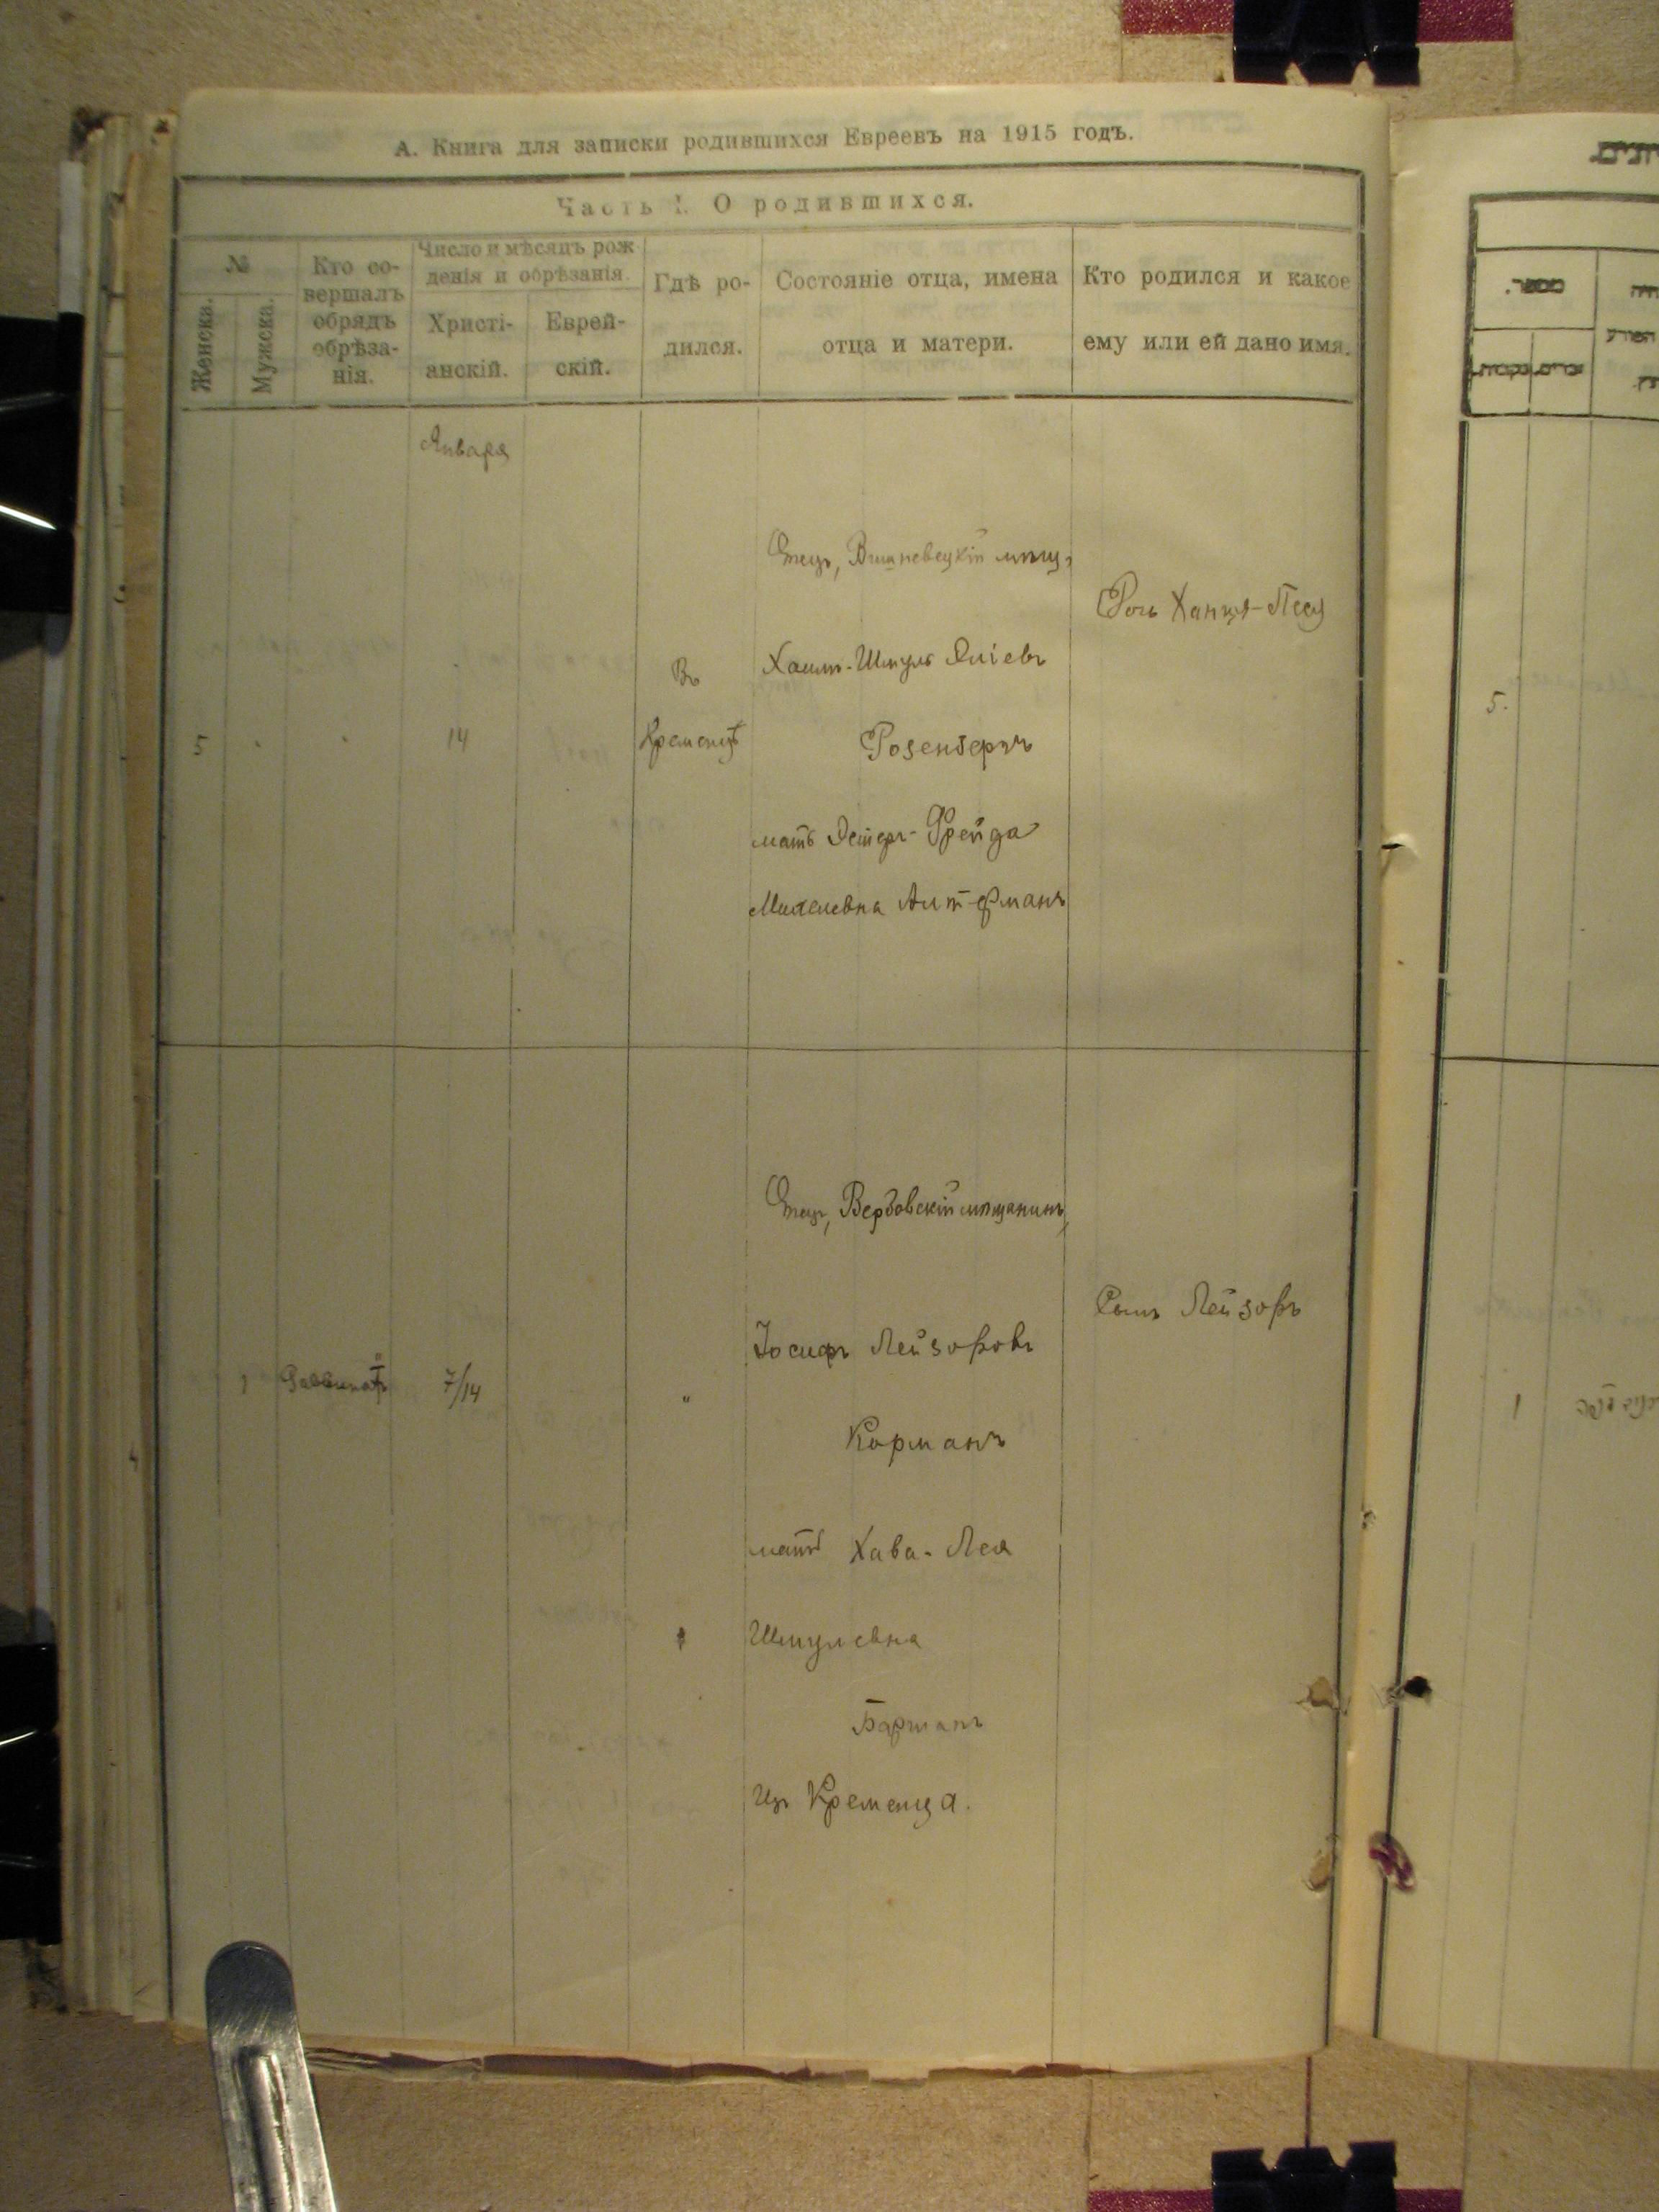 А. Книга для записки родившихся Евреевъ на 1915 годъ.
Часть I. О родившихся.
№
Женска.
Мужска.
Кто со-
вершалъ
обрядъ
обрѣза-
нія.
Число и мѣсяцъ рож
денія и обрѣзанія.
Христі-
анскій.
Еврей-
скій.
Гдѣ ро-
дился.
Состояніе отца, имена
отца и матери.
Кто родился и какое
ему или ей дано имя.
Января
5
14
Въ
Кременцѣ
Отецъ, Вишневецкій мѣщ.
Хаимъ-Шмуль
Розенбергъ
мать Эстеръ-Фрейда
Альтерманъ
Дочь Ханця-Песя
1
7/14
"
Отецъ, Вербовскій мѣщанинъ,
Іосифъ Лейзоровъ
Корманъ
мать Хава-Лея
Шмулевна
Барманъ
Изъ Кременца.
Сынъ Лейзоръ
מספר.
זכרים.
נקבות.
5.
1